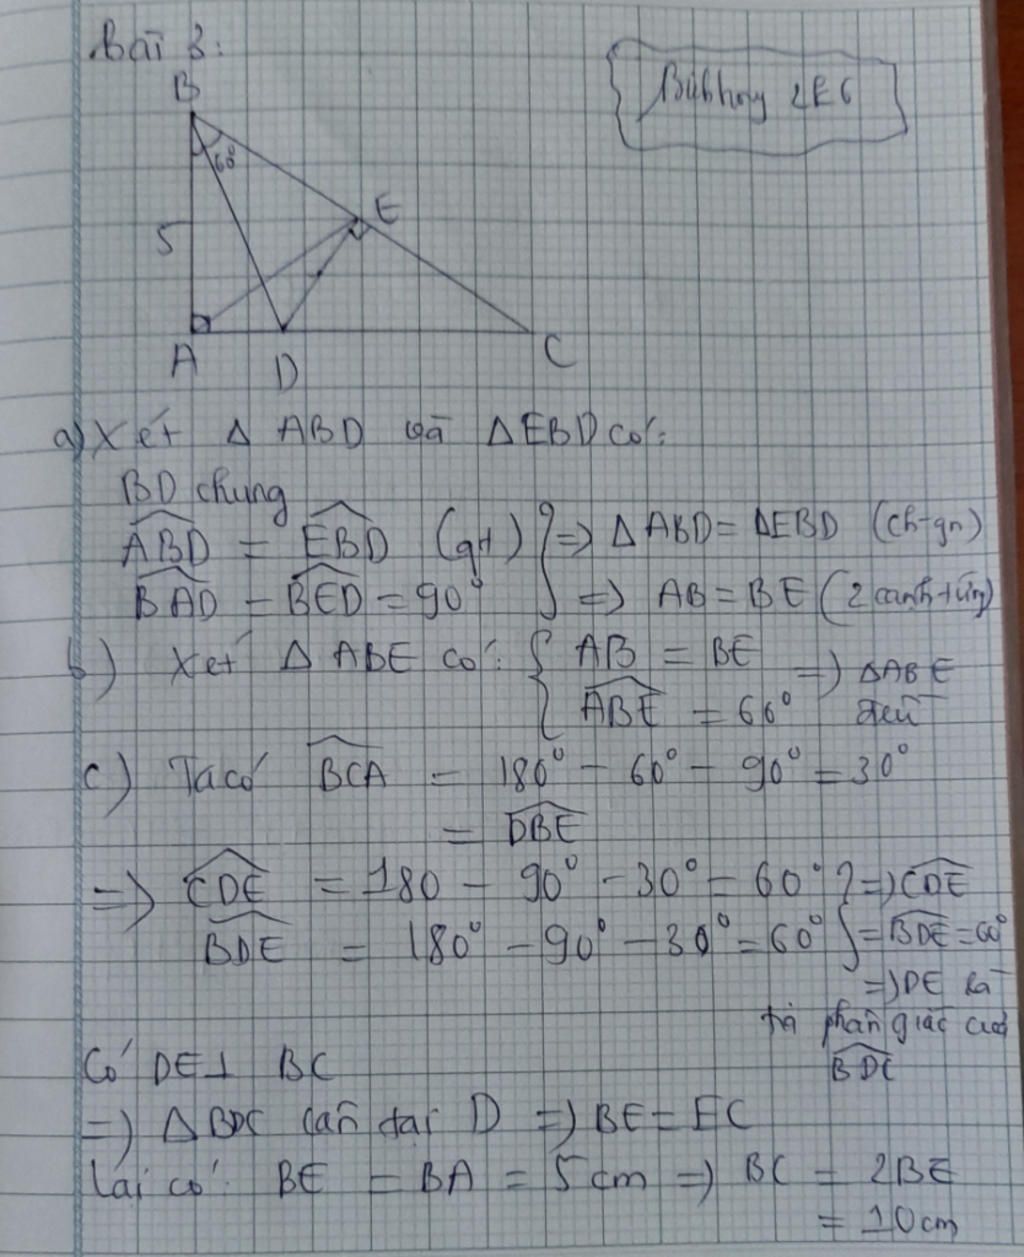 Bài 3:
B
60°
E
5
A
D
C
a) Xét Δ ABD và ΔEBD có:
BD chung
ABD = EBD (gt) } => Δ ABD = ΔEBD (ch-gn)
BAD = BED = 90° => AB = BE (2 cạnh tứng)
b) Xét Δ ABE có: { AB = BE => ΔABE
ABE = 60° đều
c) Ta có BCA = 180° - 60° - 90° = 30°
= DBE
=> CDE = 180 - 90° - 30° = 60° } => CDE
BDE = 180° - 90° - 30° = 60° = BDE = 60°
=> DE là
tia phân giác của
BDC
Có DE⊥ BC
=> Δ BDC cân tại D => BE = EC
Lại có: BE = BA = 5cm => BC = 2BE
= 10cm